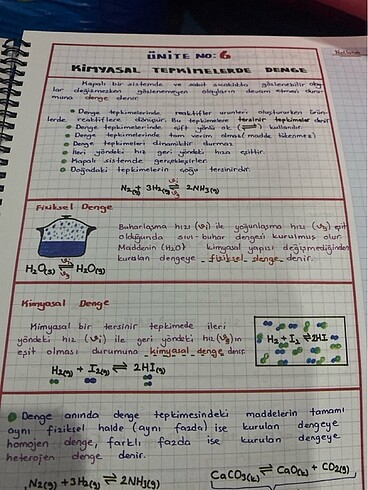 ÜNİTE NO: 6
KİMYASAL TEPKİMELERDE DENGE
Kapalı bir sistemde ve sabit sıcaklıkta gözlenebilir olay
lar değişmezken gözlenemeyen olayların devam etmesi duru
muna denge denir.
Denge tepkimelerinde reaktifler ürünleri oluştururken ürün
lerde reaktiflere dönüşür. Bu tepkimelere tersinir tepkimeler denir
Denge tepkimelerinde çift yönlü ok (⇌) kullanılır.
Denge tepkimelerinde tam verim olmaz (madde tükenmez)
Denge tepkimeleri dinamiktir durmaz
İleri yöndeki hız geri yöndeki hıza eşittir.
Kapalı sistemde gerçekleşirler.
Doğadaki tepkimelerin çoğu tersinirdir.
N₂(g) + 3H₂(g) ⇌ 2NH₃(g)
Fiziksel Denge
Buharlaşma hızı (ϑi) ile yoğunlaşma hızı (ϑg) eşit
olduğunda sıvı-buhar dengesi kurulmuş olur.
Maddenin (H₂O) kimyasal yapısı değişmediğinden
kurulan dengeye fiziksel denge denir.
H₂O(s) ⇌ H₂O(g)
Kimyasal Denge
Kimyasal bir tersinir tepkimede ileri
yöndeki hız (ϑi) ile geri yöndeki hız (ϑg)ın
eşit olması durumuna kimyasal denge denir.
H₂ + I₂ ⇌ 2HI
H₂(g) + I₂(g) ⇌ 2HI(g)
Denge anında denge tepkimesindeki maddelerin tamamı
aynı fiziksel halde (aynı fazda) ise kurulan dengeye
homojen denge, farklı fazda ise kurulan dengeye
heterojen denge denir.
N₂(g) + 3H₂(g) ⇌ 2NH₃(g)
CaCO₃(k) ⇌ CaO(k) + CO₂(g)